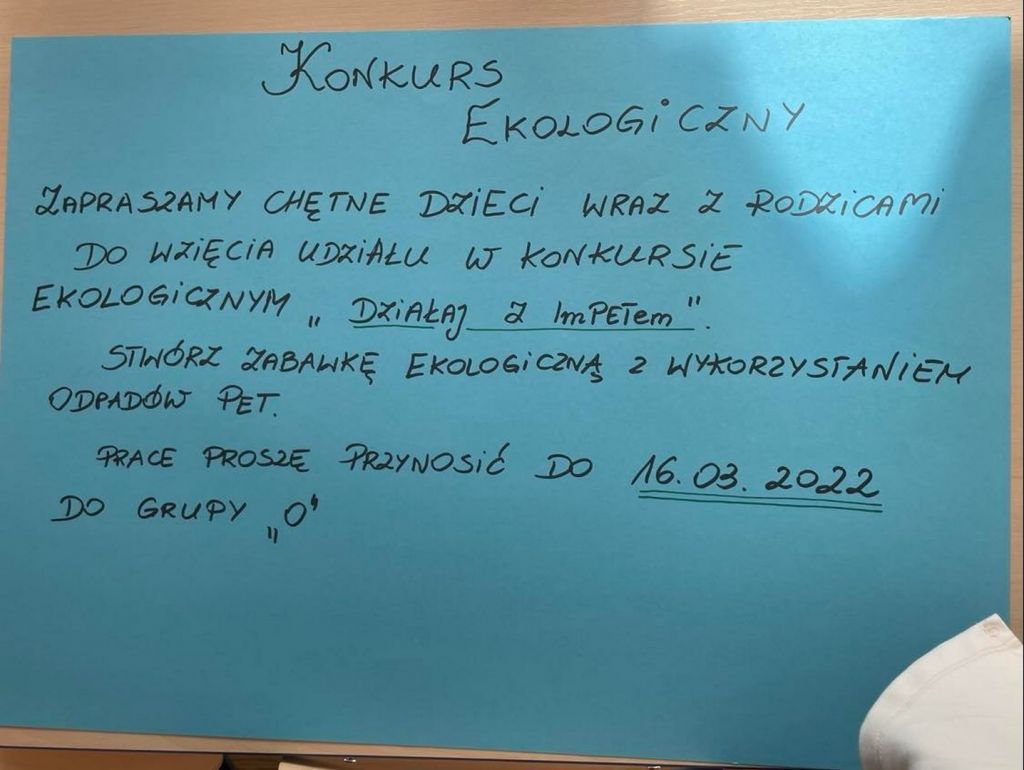 KONKURS
EKOLOGICZNY
ZAPRASZAMY CHĘTNE DZIECI WRAZ Z RODZICAMI
DO WZIĘCIA UDZIAŁU W KONKURSIE
EKOLOGICZNYM „DZIAŁAJ Z ImPETem".
STWÓRZ ZABAWKĘ EKOLOGICZNĄ Z WYKORZYSTANIEM
ODPADÓW PET.
PRACE PROSZĘ PRZYNOSIĆ DO 16.03.2022
DO GRUPY „O"